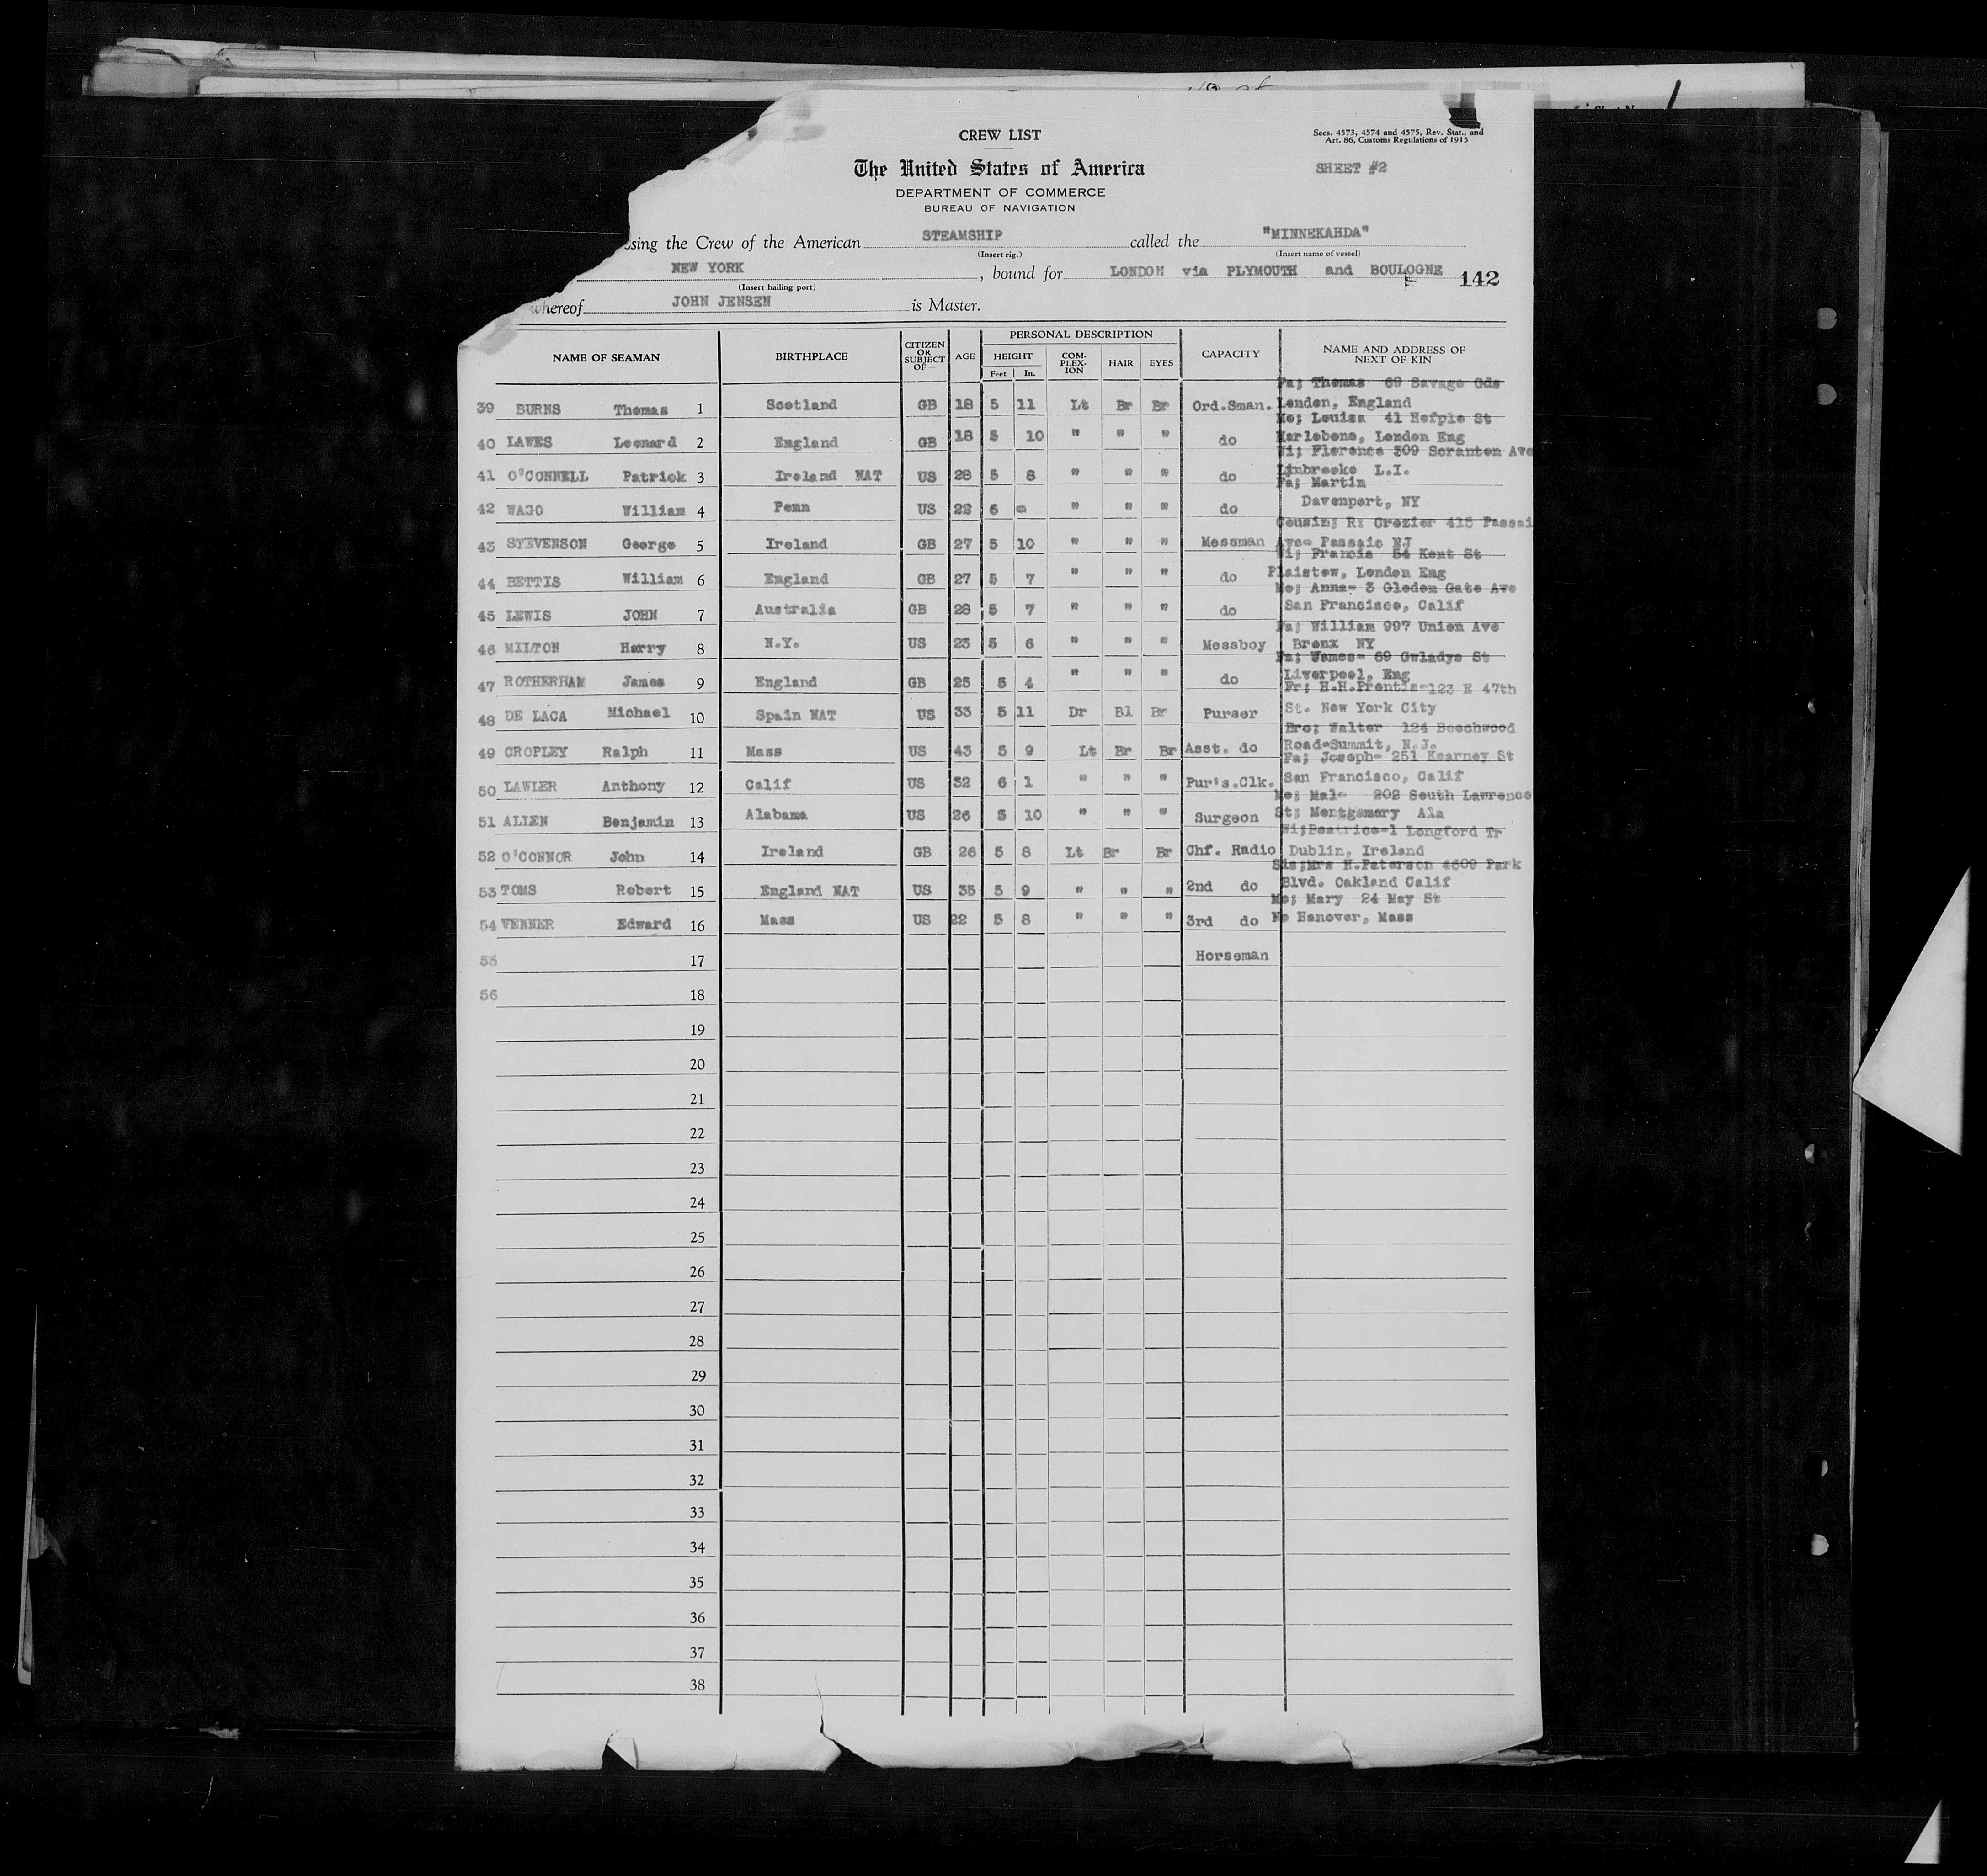 CREW LIST
Secs. 4573, 4574 and 4575, Rev. Stat., and
Art. 86, Customs Regulations of 1915
The United States of America
SHEET #2
DEPARTMENT OF COMMERCE
BUREAU OF NAVIGATION
sing the Crew of the American STEAMSHIP called the "MINNEKAHDA"
(Insert rig.) (Insert name of vessel)
NEW YORK , bound for LONDON via PLYMOUTH and BOULOGNE 142
(Insert hailing port)
whereof JOHN JENSEN is Master.
NAME OF SEAMAN BIRTHPLACE CITIZEN OR SUBJECT OF— AGE PERSONAL DESCRIPTION CAPACITY NAME AND ADDRESS OF NEXT OF KIN
HEIGHT COM-PLEX-ION HAIR EYES
Feet In.
Fa; Thomas 69 Savage Gds
39 BURNS Thomas 1 Scotland GB 18 5 11 Lt Br Br Ord.Sman. London, England
Mo; Louiza 41 Hefple St
40 LAWES Leonard 2 England GB 18 5 10 " " " do Marlebone, London Eng
Wi; Florence 309 Scranton Ave
41 O'CONNELL Patrick 3 Ireland NAT US 28 5 8 " " " do Linbrooke L.I.
Fa; Martin
42 WAGO William 4 Penn US 22 6 - " " " do Davenport, NY
Cousin; R: Crozier 415 Passai
43 STEVENSON George 5 Ireland GB 27 5 10 " " " Messman Ave- Passaic NJ
Wi; Francis 54 Kent St
44 BETTIS William 6 England GB 27 5 7 " " " do Plaistow, London Eng
Mo; Anna- 3 Gleden Gate Ave
45 LEWIS JOHN 7 Australia GB 28 5 7 " " " do San Francisco, Calif
Fa; William 997 Union Ave
46 MILTON Harry 8 N.Y. US 23 5 6 " " " Messboy Bronx NY
Fa; James- 69 Gwladys St
47 ROTHERHAM James 9 England GB 25 5 4 " " " do Liverpool, Eng
Fr; H.H.Prentis-123 E 47th
48 DE LACA Michael 10 Spain NAT US 33 5 11 Dr Bl Br Purser St. New York City
Bro; Walter 124 Beechwood
49 CROPLEY Ralph 11 Mass US 43 5 9 Lt Br Br Asst. do Road-Summit, N.J.
Fa; Joseph- 251 Kearney St
50 LAWLER Anthony 12 Calif US 32 6 1 " " " Pur's.Clk. San Francisco, Calif
Mo; Mal- 202 South Lawrence
51 ALLEN Benjamin 13 Alabama US 26 5 10 " " " Surgeon St; Montgomery Ala
Wi;Beatrice-1 Longford Tr
52 O'CONNOR John 14 Ireland GB 26 5 8 Lt Br Br Chf. Radio Dublin, Ireland
Sis;Mrs H.Paterson 4609 Park
53 TOMS Robert 15 England NAT US 35 5 9 " " " 2nd do Blvd. Oakland Calif
Mo; Mary 24 May St
54 VERNER Edward 16 Mass US 22 5 8 " " " 3rd do No Hanover, Mass
55 17 Horseman
56 18
19
20
21
22
23
24
25
26
27
28
29
30
31
32
33
34
35
36
37
38